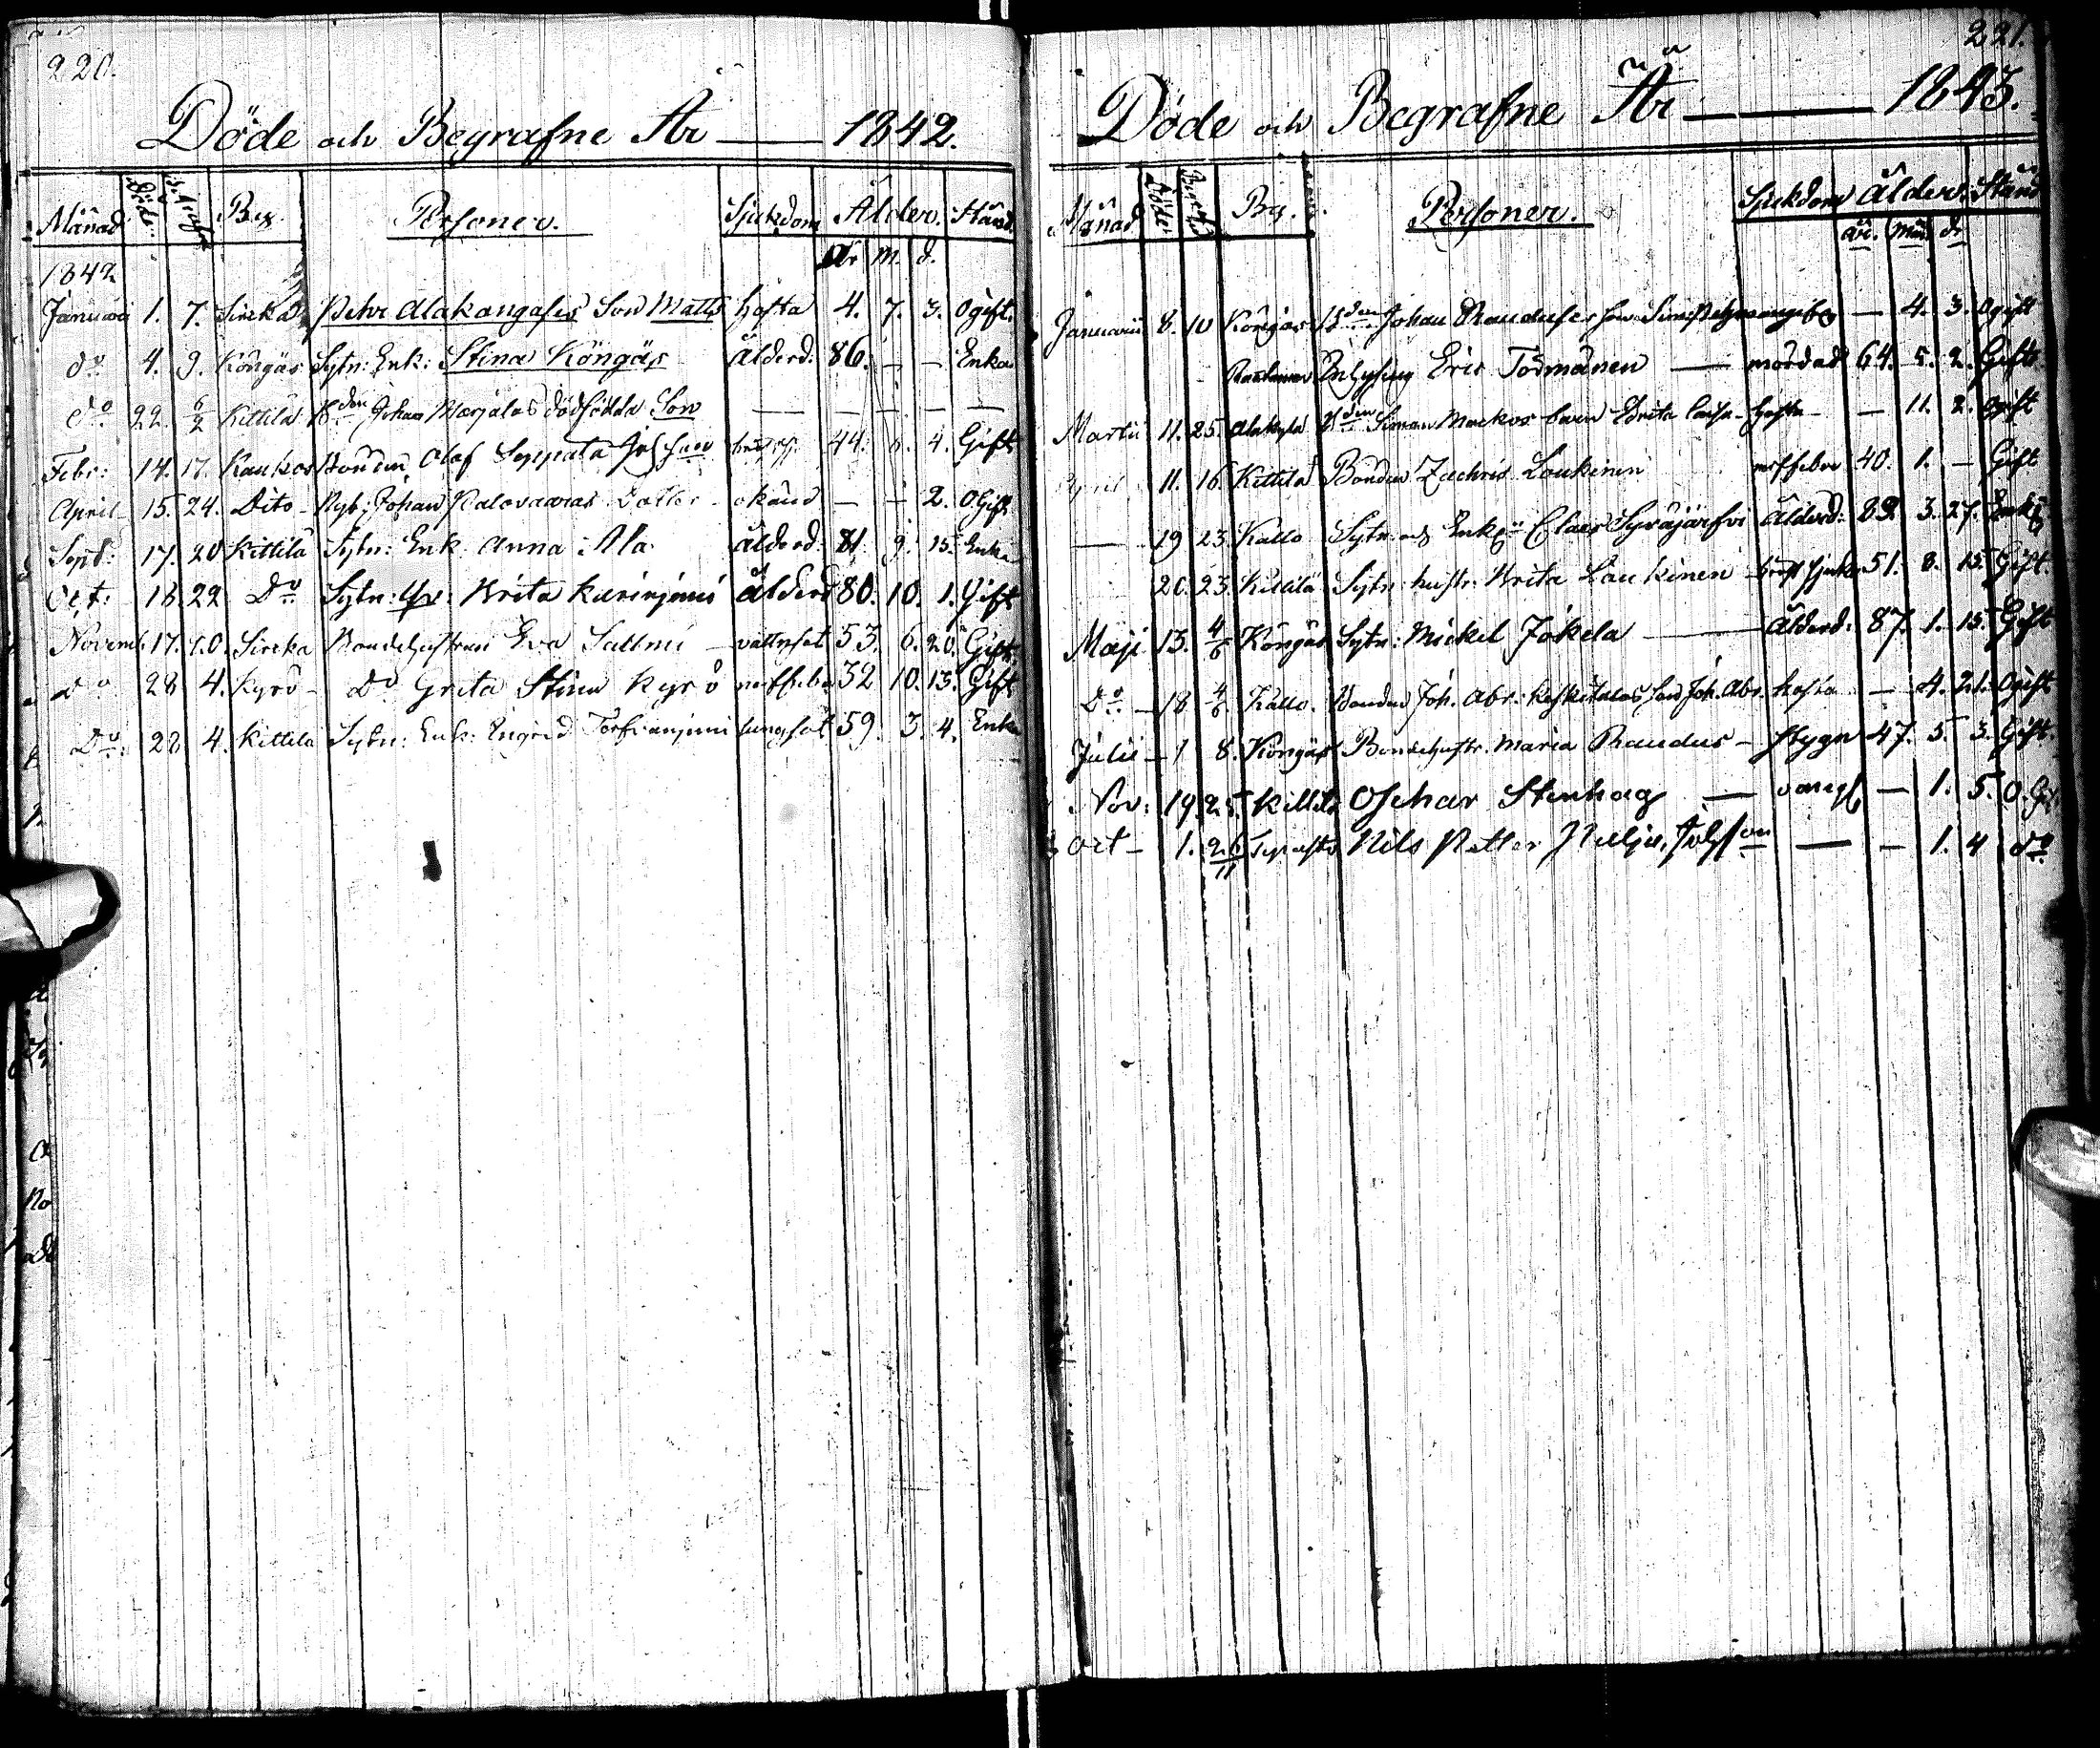 220.
Döde och Begrafne År — 1842.
Månad Döde Begrafne By Personer. Sjukdom Ålder. Stånd.
År m. d.
1842
Januari 1. 7. Sirka Petri Alakangases Son Matts hosta 4. 7. 3. Ogift.
do 4. 9. Köngäs Sytn: Enk: Stina Köngäs Ålderd: 86. — — Enka
do 22. 6/2 Kittilä Bden Johan Marjalas dödfödda Son — — — —
Febr: 14. 17. Kaukos Bonden Olof Seppälä Johsson 44. 6. 4. Gift
April 15. 24. Dito Nyb: Johan Palovaaras Dotter okänd — — 2. O Gift
Sept: 17. 20 Kittilä Sytn: Enk. Anna Ala Ålderd: 81 9. 15. Enka
Oct: 18 22 Do Sytn: Brita Kurinjemi Ålderd 80. 10. 1. Gift
Novemb. 17. 20. Sirka Bondehustrun Eva Salmi vattusot 53. 6. 20. Gift.
do 28 4. Kyrö Do Greta Stina Kyrö nerffeber 32 10. 13. Gift
Do 28 4. Kittilä Sytn: Enk: Lungsot 59. 3. 4. Enka
221.
Döde och Begrafne År — 1843.
Månad Döde Begrafne By. Personer. Sjukdom Ålder. Stånd
år. mån. d.
Januarii 8. 10 Köngäs Bden Johan Rauduses Son — 4. 3. Ogift
Inhysing Eric Tormänen — mördad 64. 5. 2. Gift
Martii 11. 25. Alakylä Bden Simon Markos barn Brita hosta — 11. 2. Ogift
April 11. 16. Kittilä Bonden Zachris Laukinen nerffeber 40. 1. — Gift
— 19 23 Kallo Sytn: Claes Syväjärfvi Ålderd: 82 3. 27. Enkl
20. 23. Kittilä Sytn: hustr: Brita Laukinen bröstsjuka 51. 8. 15. Gift.
Maji 13. 4/6 Köngäs Sytn: Mickel Jokela — Ålderd: 87. 1. 15. Gift
Do — 18 4/6 Kallo. Bonden Joh. Abr: Keskitalos Son Joh. Abr. hosta — 4. 21. Ogift
Julii — 1 8. Köngäs Bondehustr. Maria Raudus — Stygn 47. 5. 3. Gift
Nov: 19. 25. Kittilä Oschar Stenhag — — 1. 5. O. Gi
Oct — 1. 26/11 Nils Petter — — 1. 4 do